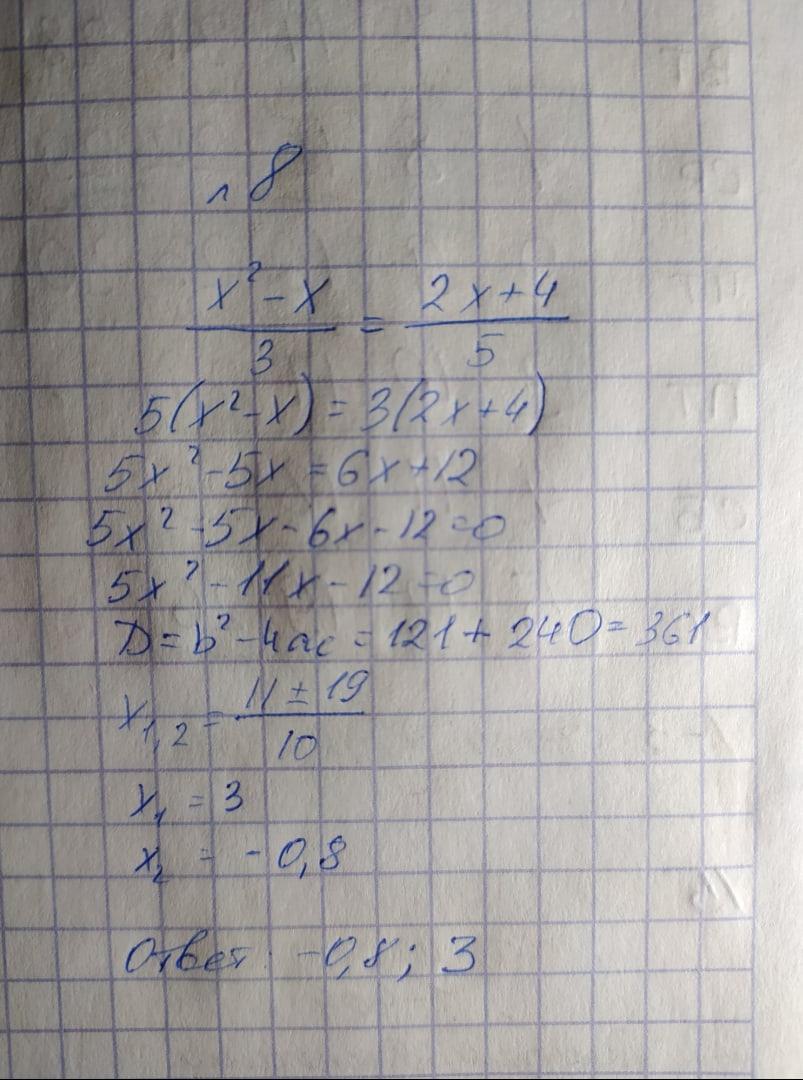 л 8
x² - x / 3 = 2x + 4 / 5
5(x² - x) = 3(2x + 4)
5x² - 5x = 6x + 12
5x² - 5x - 6x - 12 = 0
5x² - 11x - 12 = 0
D = b² - 4ac = 121 + 240 = 361
x₁,₂ = 11 ± 19 / 10
x₁ = 3
x₂ = - 0,8
Ответ: -0,8; 3